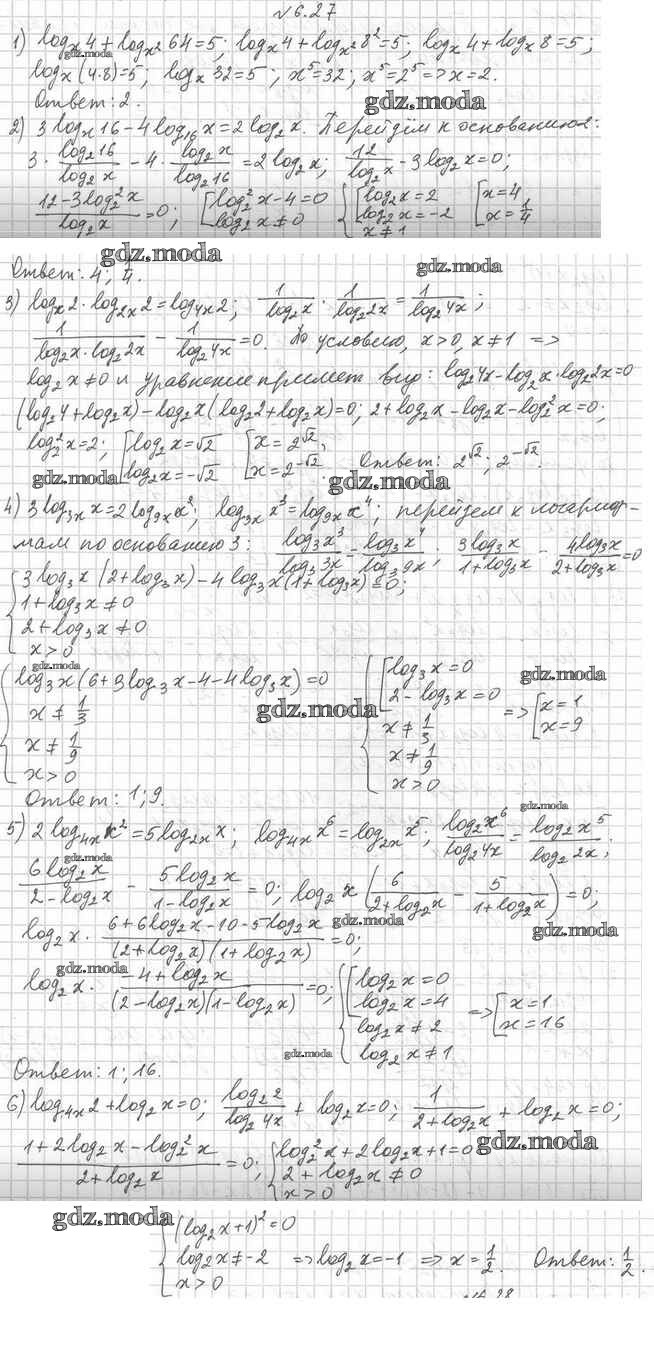 №6.27
1) log_x 4 + log_{x²} 64 = 5; log_x 4 + log_{x²} 8² = 5; log_x 4 + log_x 8 = 5;
gdz.moda
log_x (4·8) = 5; log_x 32 = 5; x⁵ = 32; x⁵ = 2⁵ => x = 2.
Ответ: 2.
gdz.moda
2) 3 log_x 16 - 4 log_16 x = 2 log_2 x. Перейдём к основанию 2:
3 · log_2 16 / log_2 x - 4 · log_2 x / log_2 16 = 2 log_2 x; 12 / log_2 x - 3 log_2 x = 0;
(12 - 3 log_2² x) / log_2 x = 0; [log_2² x - 4 = 0 log_2 x ≠ 0 {[log_2 x = 2 log_2 x = -2 x ≠ 1 [x = 4 x = 1/4
gdz.moda
Ответ: 4; 1/4.
gdz.moda
3) log_x 2 · log_{2x} 2 = log_{4x} 2; 1 / log_2 x · 1 / log_2 2x = 1 / log_2 4x;
1 / (log_2 x · log_2 2x) - 1 / log_2 4x = 0. По условию, x > 0, x ≠ 1 =>
log_2 x ≠ 0 и уравнение примет вид: log_2 4x - log_2 x · log_2 2x = 0
(log_2 4 + log_2 x) - log_2 x (log_2 2 + log_2 x) = 0; 2 + log_2 x - log_2 x - log_2² x = 0;
log_2² x = 2; [log_2 x = √2 log_2 x = -√2 [x = 2^√2, x = 2^-√2. Ответ: 2^√2; 2^-√2.
gdz.moda
gdz.moda
4) 3 log_{3x} x = 2 log_{9x} x²; log_{3x} x³ = log_{9x} x⁴; перейдем к логариф-
мам по основанию 3: log_3 x³ / log_3 3x = log_3 x⁴ / log_3 9x; 3 log_3 x / (1 + log_3 x) - 4 log_3 x / (2 + log_3 x) = 0
{3 log_3 x (2 + log_3 x) - 4 log_3 x (1 + log_3 x) = 0;
1 + log_3 x ≠ 0
2 + log_3 x ≠ 0
x > 0
gdz.moda
{log_3 x (6 + 3 log_3 x - 4 - 4 log_3 x) = 0 {[log_3 x = 0
gdz.moda
x ≠ 1/3 2 - log_3 x = 0 => [x = 1
gdz.moda
x ≠ 1/9 x ≠ 1/3 x = 9
x > 0 x ≠ 1/9
x > 0
Ответ: 1; 9.
gdz.moda
5) 2 log_{4x} x² = 5 log_{2x} x; log_{4x} x⁶ = log_{2x} x⁵; log_2 x⁶ / log_2 4x = log_2 x⁵ / log_2 2x;
gdz.moda
6 log_2 x / (2 - log_2 x) - 5 log_2 x / (1 - log_2 x) = 0; log_2 x (6 / (2 + log_2 x) - 5 / (1 + log_2 x)) = 0;
gdz.moda
gdz.moda
log_2 x · (6 + 6 log_2 x - 10 - 5 log_2 x) / ((2 + log_2 x)(1 + log_2 x)) = 0;
gdz.moda
log_2 x · (-4 + log_2 x) / ((2 - log_2 x)(1 - log_2 x)) = 0; {[log_2 x = 0
log_2 x = 4 => [x = 1
log_2 x ≠ 2 x = 16
log_2 x ≠ 1
gdz.moda
Ответ: 1; 16.
6) log_{4x} 2 + log_2 x = 0; log_2 2 / log_2 4x + log_2 x = 0; 1 / (2 + log_2 x) + log_2 x = 0;
gdz.moda
(1 + 2 log_2 x - log_2² x) / (2 + log_2 x) = 0; {log_2² x + 2 log_2 x + 1 = 0
2 + log_2 x ≠ 0
x > 0
gdz.moda
{(log_2 x + 1)² = 0
log_2 x ≠ -2 => log_2 x = -1 => x = 1/2. Ответ: 1/2.
x > 0